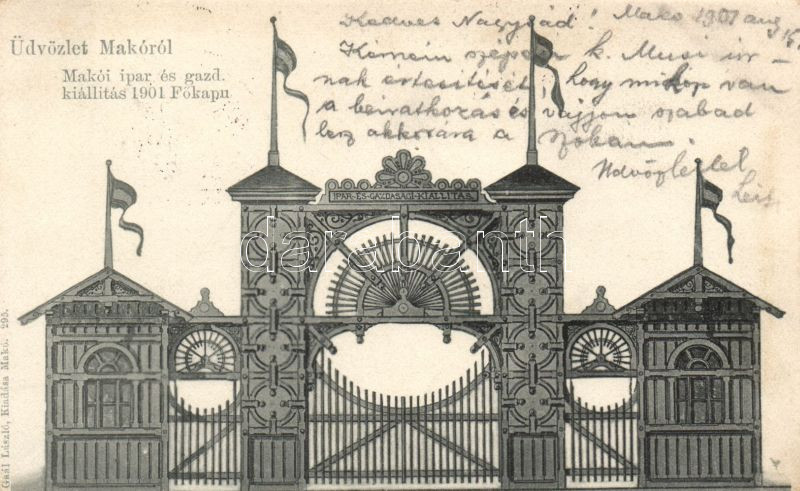 Üdvözlet Makóról
Makói ipar és gazd.
kiállitás 1901 Főkapu
Kedves Nagysád! Mako 1901 aug
Kérném szépen k. Musi ir-
nak értesitését, hogy mikor van
a beiratkozás és vajjon szabad
lesz akkorára a
Üdvözlettel
IPAR-ÉS-GAZDASÁGI-KIÁLLITÁS
darabanth
Gaál László, Kiadása Makó. 295.